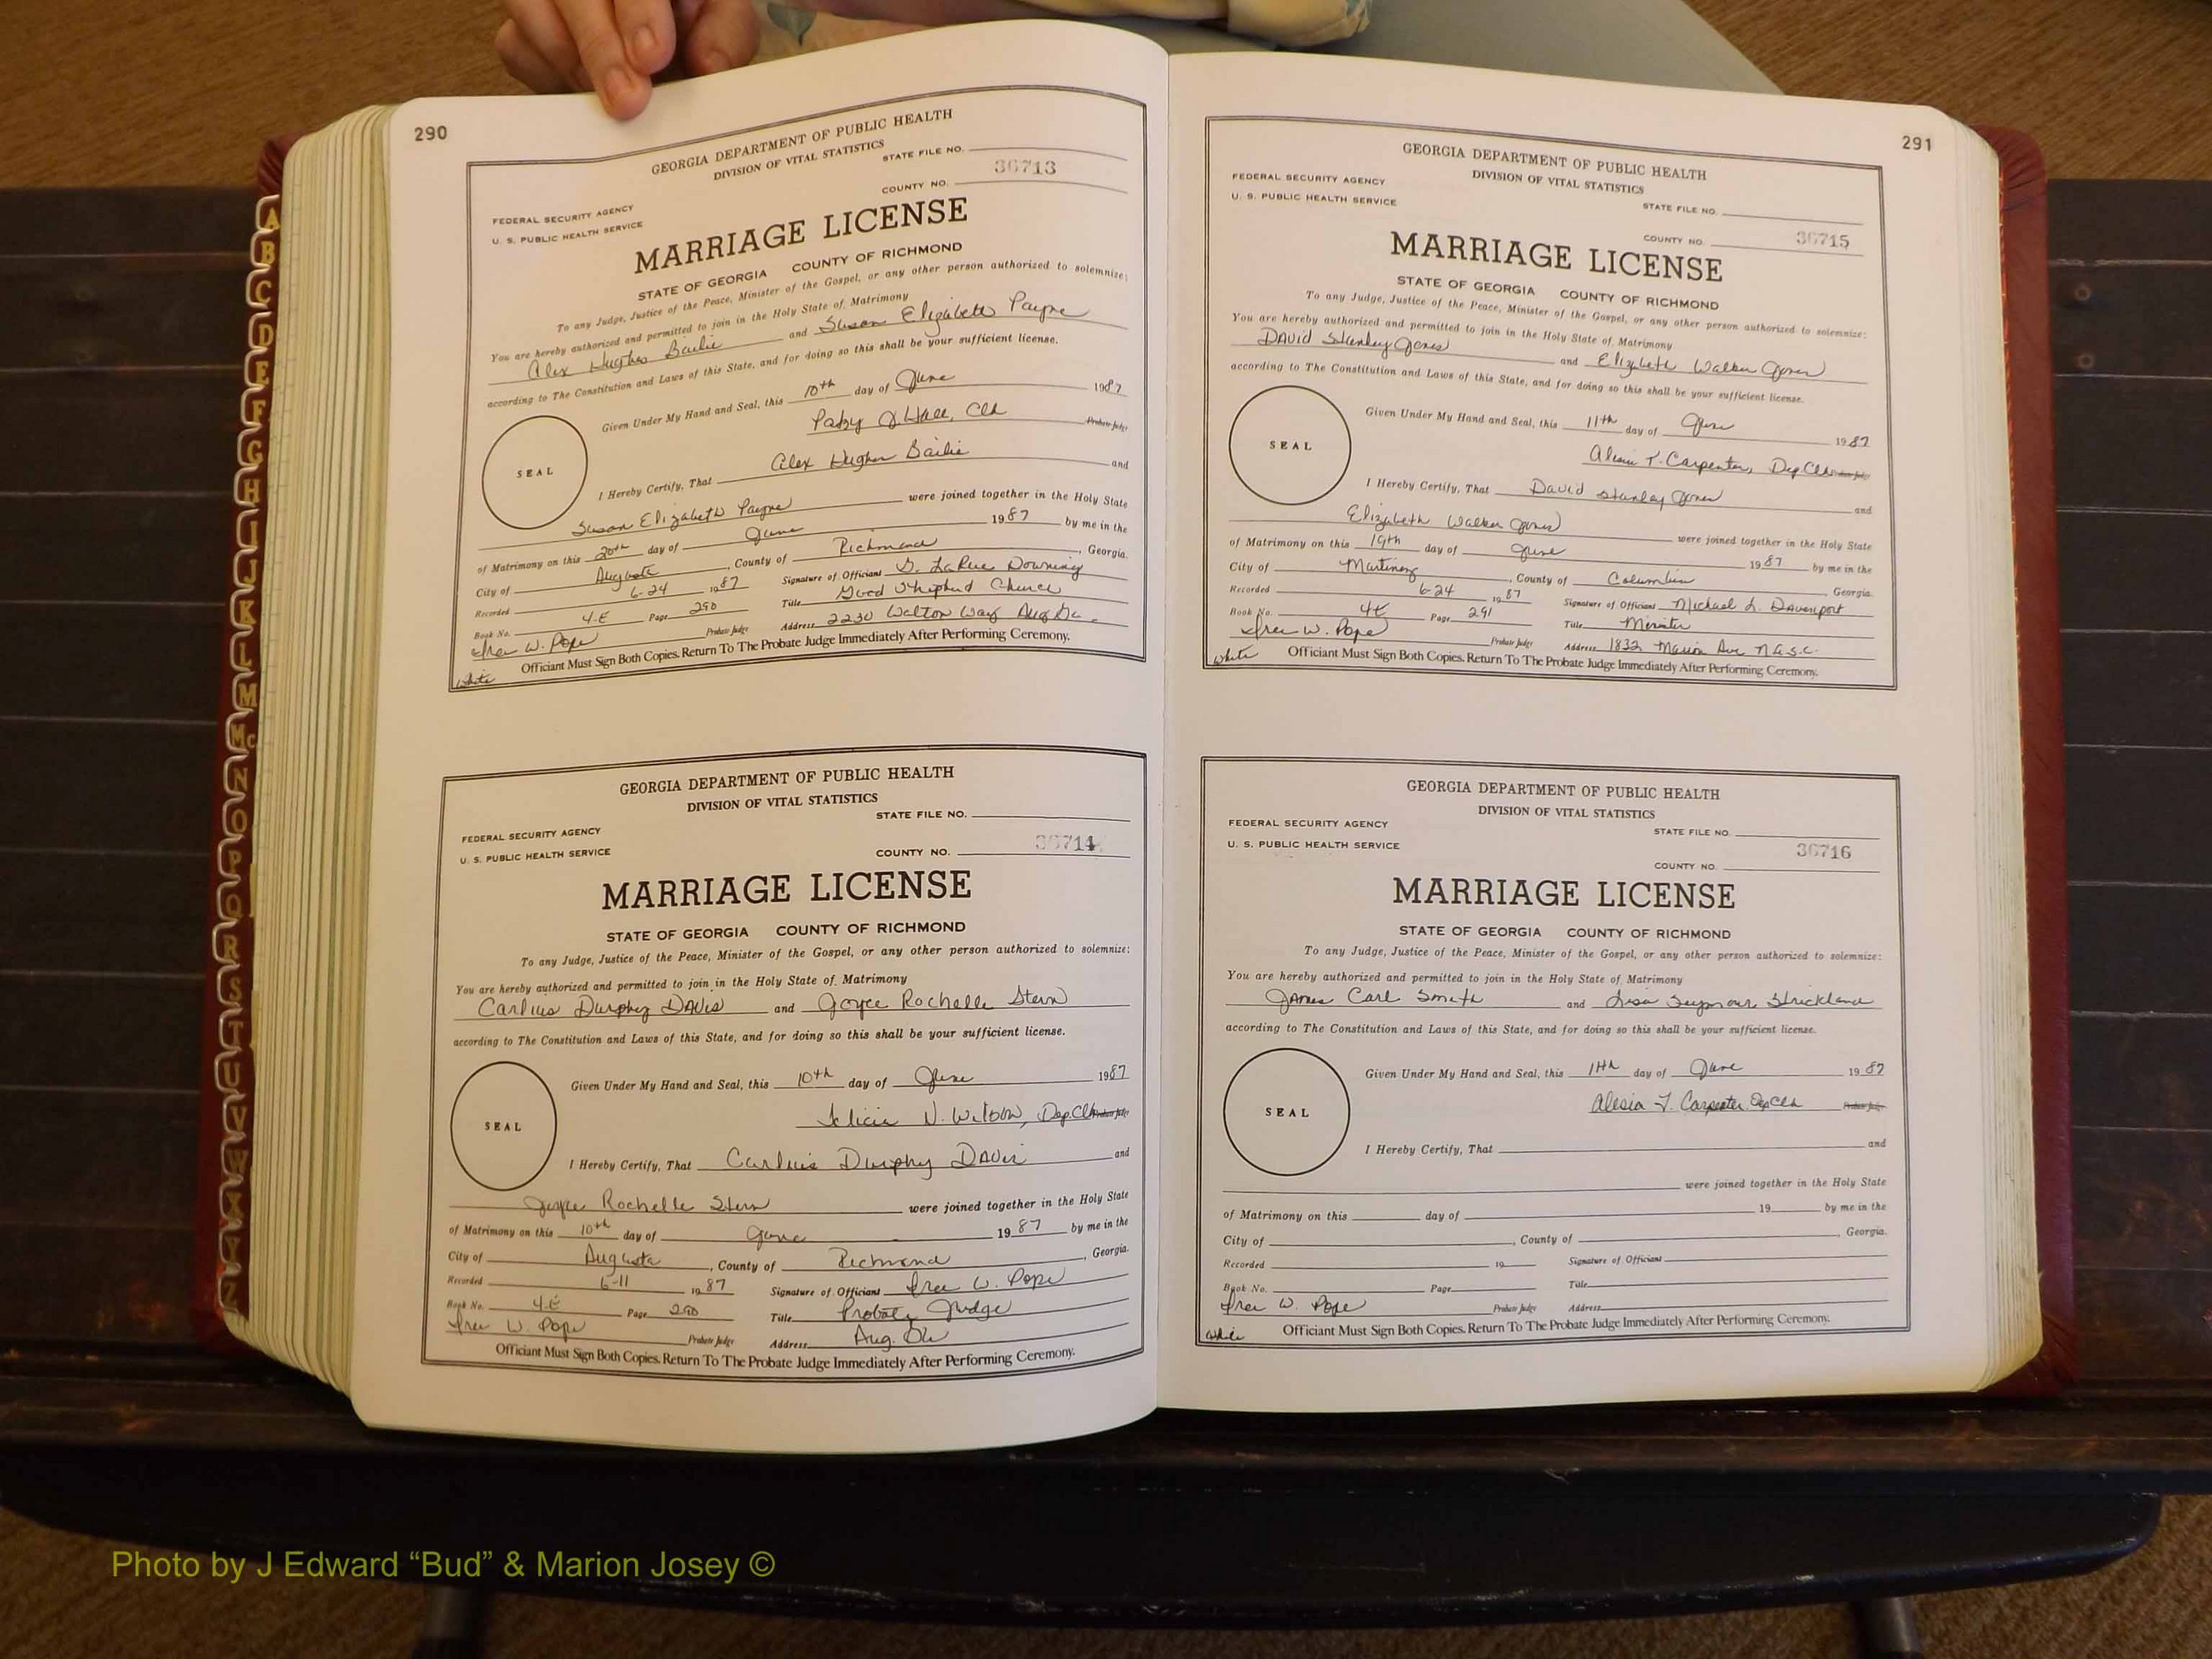 290
GEORGIA DEPARTMENT OF PUBLIC HEALTH
DIVISION OF VITAL STATISTICS
STATE FILE NO.
36713
COUNTY NO.
FEDERAL SECURITY AGENCY
U. S. PUBLIC HEALTH SERVICE
MARRIAGE LICENSE
STATE OF GEORGIA COUNTY OF RICHMOND
To any Judge, Justice of the Peace, Minister of the Gospel, or any other person authorized to solemnize:
You are hereby authorized and permitted to join in the Holy State of Matrimony
Alex Hughes Bailie and Susan Elizabeth Payne
according to The Constitution and Laws of this State, and for doing so this shall be your sufficient license.
Given Under My Hand and Seal, this 10th day of June 1987
Patsy J. Hall, Clk Probate Judge
SEAL
I Hereby Certify, That Alex Hughes Bailie and
Susan Elizabeth Payne were joined together in the Holy State
of Matrimony on this 20th day of June 1987 by me in the
City of Augusta, County of Richmond, Georgia.
Recorded 6-24 1987 Signature of Officiant G. LaRue Downing
Book No. 4-E Page 290 Title Good Shepherd Church
Iree W. Pope Probate Judge Address 2230 Walton Way Aug Ga.
White Officiant Must Sign Both Copies. Return To The Probate Judge Immediately After Performing Ceremony.
GEORGIA DEPARTMENT OF PUBLIC HEALTH
DIVISION OF VITAL STATISTICS
STATE FILE NO.
FEDERAL SECURITY AGENCY
U. S. PUBLIC HEALTH SERVICE
COUNTY NO. 36714
MARRIAGE LICENSE
STATE OF GEORGIA COUNTY OF RICHMOND
To any Judge, Justice of the Peace, Minister of the Gospel, or any other person authorized to solemnize:
You are hereby authorized and permitted to join in the Holy State of Matrimony
Carlius Durphy Davis and Joyce Rochelle Stern
according to The Constitution and Laws of this State, and for doing so this shall be your sufficient license.
Given Under My Hand and Seal, this 10th day of June 1987
Felicia N. Wilson, Dep. Clk Probate Judge
SEAL
I Hereby Certify, That Carlius Durphy Davis and
Joyce Rochelle Stern were joined together in the Holy State
of Matrimony on this 10th day of June 1987 by me in the
City of Augusta, County of Richmond, Georgia.
Recorded 6-11 1987 Signature of Officiant Iree W. Pope
Book No. 4-E Page 290 Title Probate Judge
Iree W. Pope Probate Judge Address Aug. Ga
Officiant Must Sign Both Copies. Return To The Probate Judge Immediately After Performing Ceremony.
291
GEORGIA DEPARTMENT OF PUBLIC HEALTH
DIVISION OF VITAL STATISTICS
FEDERAL SECURITY AGENCY
U. S. PUBLIC HEALTH SERVICE
STATE FILE NO.
COUNTY NO. 36715
MARRIAGE LICENSE
STATE OF GEORGIA COUNTY OF RICHMOND
To any Judge, Justice of the Peace, Minister of the Gospel, or any other person authorized to solemnize:
You are hereby authorized and permitted to join in the Holy State of Matrimony
David Stanley Jones and Elizabeth Walker Jones
according to The Constitution and Laws of this State, and for doing so this shall be your sufficient license.
Given Under My Hand and Seal, this 11th day of June 1987
Alesia T. Carpenter, Dep. Clk Probate Judge
SEAL
I Hereby Certify, That David Stanley Jones and
Elizabeth Walker Jones were joined together in the Holy State
of Matrimony on this 19th day of June 1987 by me in the
City of Martinez, County of Columbia, Georgia
Recorded 6-24 1987 Signature of Officiant Michael L. Davenport
Book No. 4E Page 291 Title Minister
Iree W. Pope Probate Judge Address 1832 Marion Ave N.A.S.C.
White Officiant Must Sign Both Copies. Return To The Probate Judge Immediately After Performing Ceremony.
GEORGIA DEPARTMENT OF PUBLIC HEALTH
DIVISION OF VITAL STATISTICS
FEDERAL SECURITY AGENCY
STATE FILE NO.
U. S. PUBLIC HEALTH SERVICE
36716
COUNTY NO.
MARRIAGE LICENSE
STATE OF GEORGIA COUNTY OF RICHMOND
To any Judge, Justice of the Peace, Minister of the Gospel, or any other person authorized to solemnize:
You are hereby authorized and permitted to join in the Holy State of Matrimony
James Carl Smith and Lisa Seymour Strickland
according to The Constitution and Laws of this State, and for doing so this shall be your sufficient license.
Given Under My Hand and Seal, this 11th day of June 1987
Alesia T. Carpenter, Dep Clk Probate Judge
SEAL
I Hereby Certify, That and
were joined together in the Holy State
of Matrimony on this day of 19 by me in the
City of , County of , Georgia.
Recorded 19 Signature of Officiant
Book No. Page Title
Iree W. Pope Probate Judge Address
White Officiant Must Sign Both Copies. Return To The Probate Judge Immediately After Performing Ceremony.
A
B
C
D
E
F
G
H
I
J
K
L
M
Mc
N
O
P
Q
R
S
T
U
V
W
X
Y
Z
Photo by J Edward “Bud” & Marion Josey ©